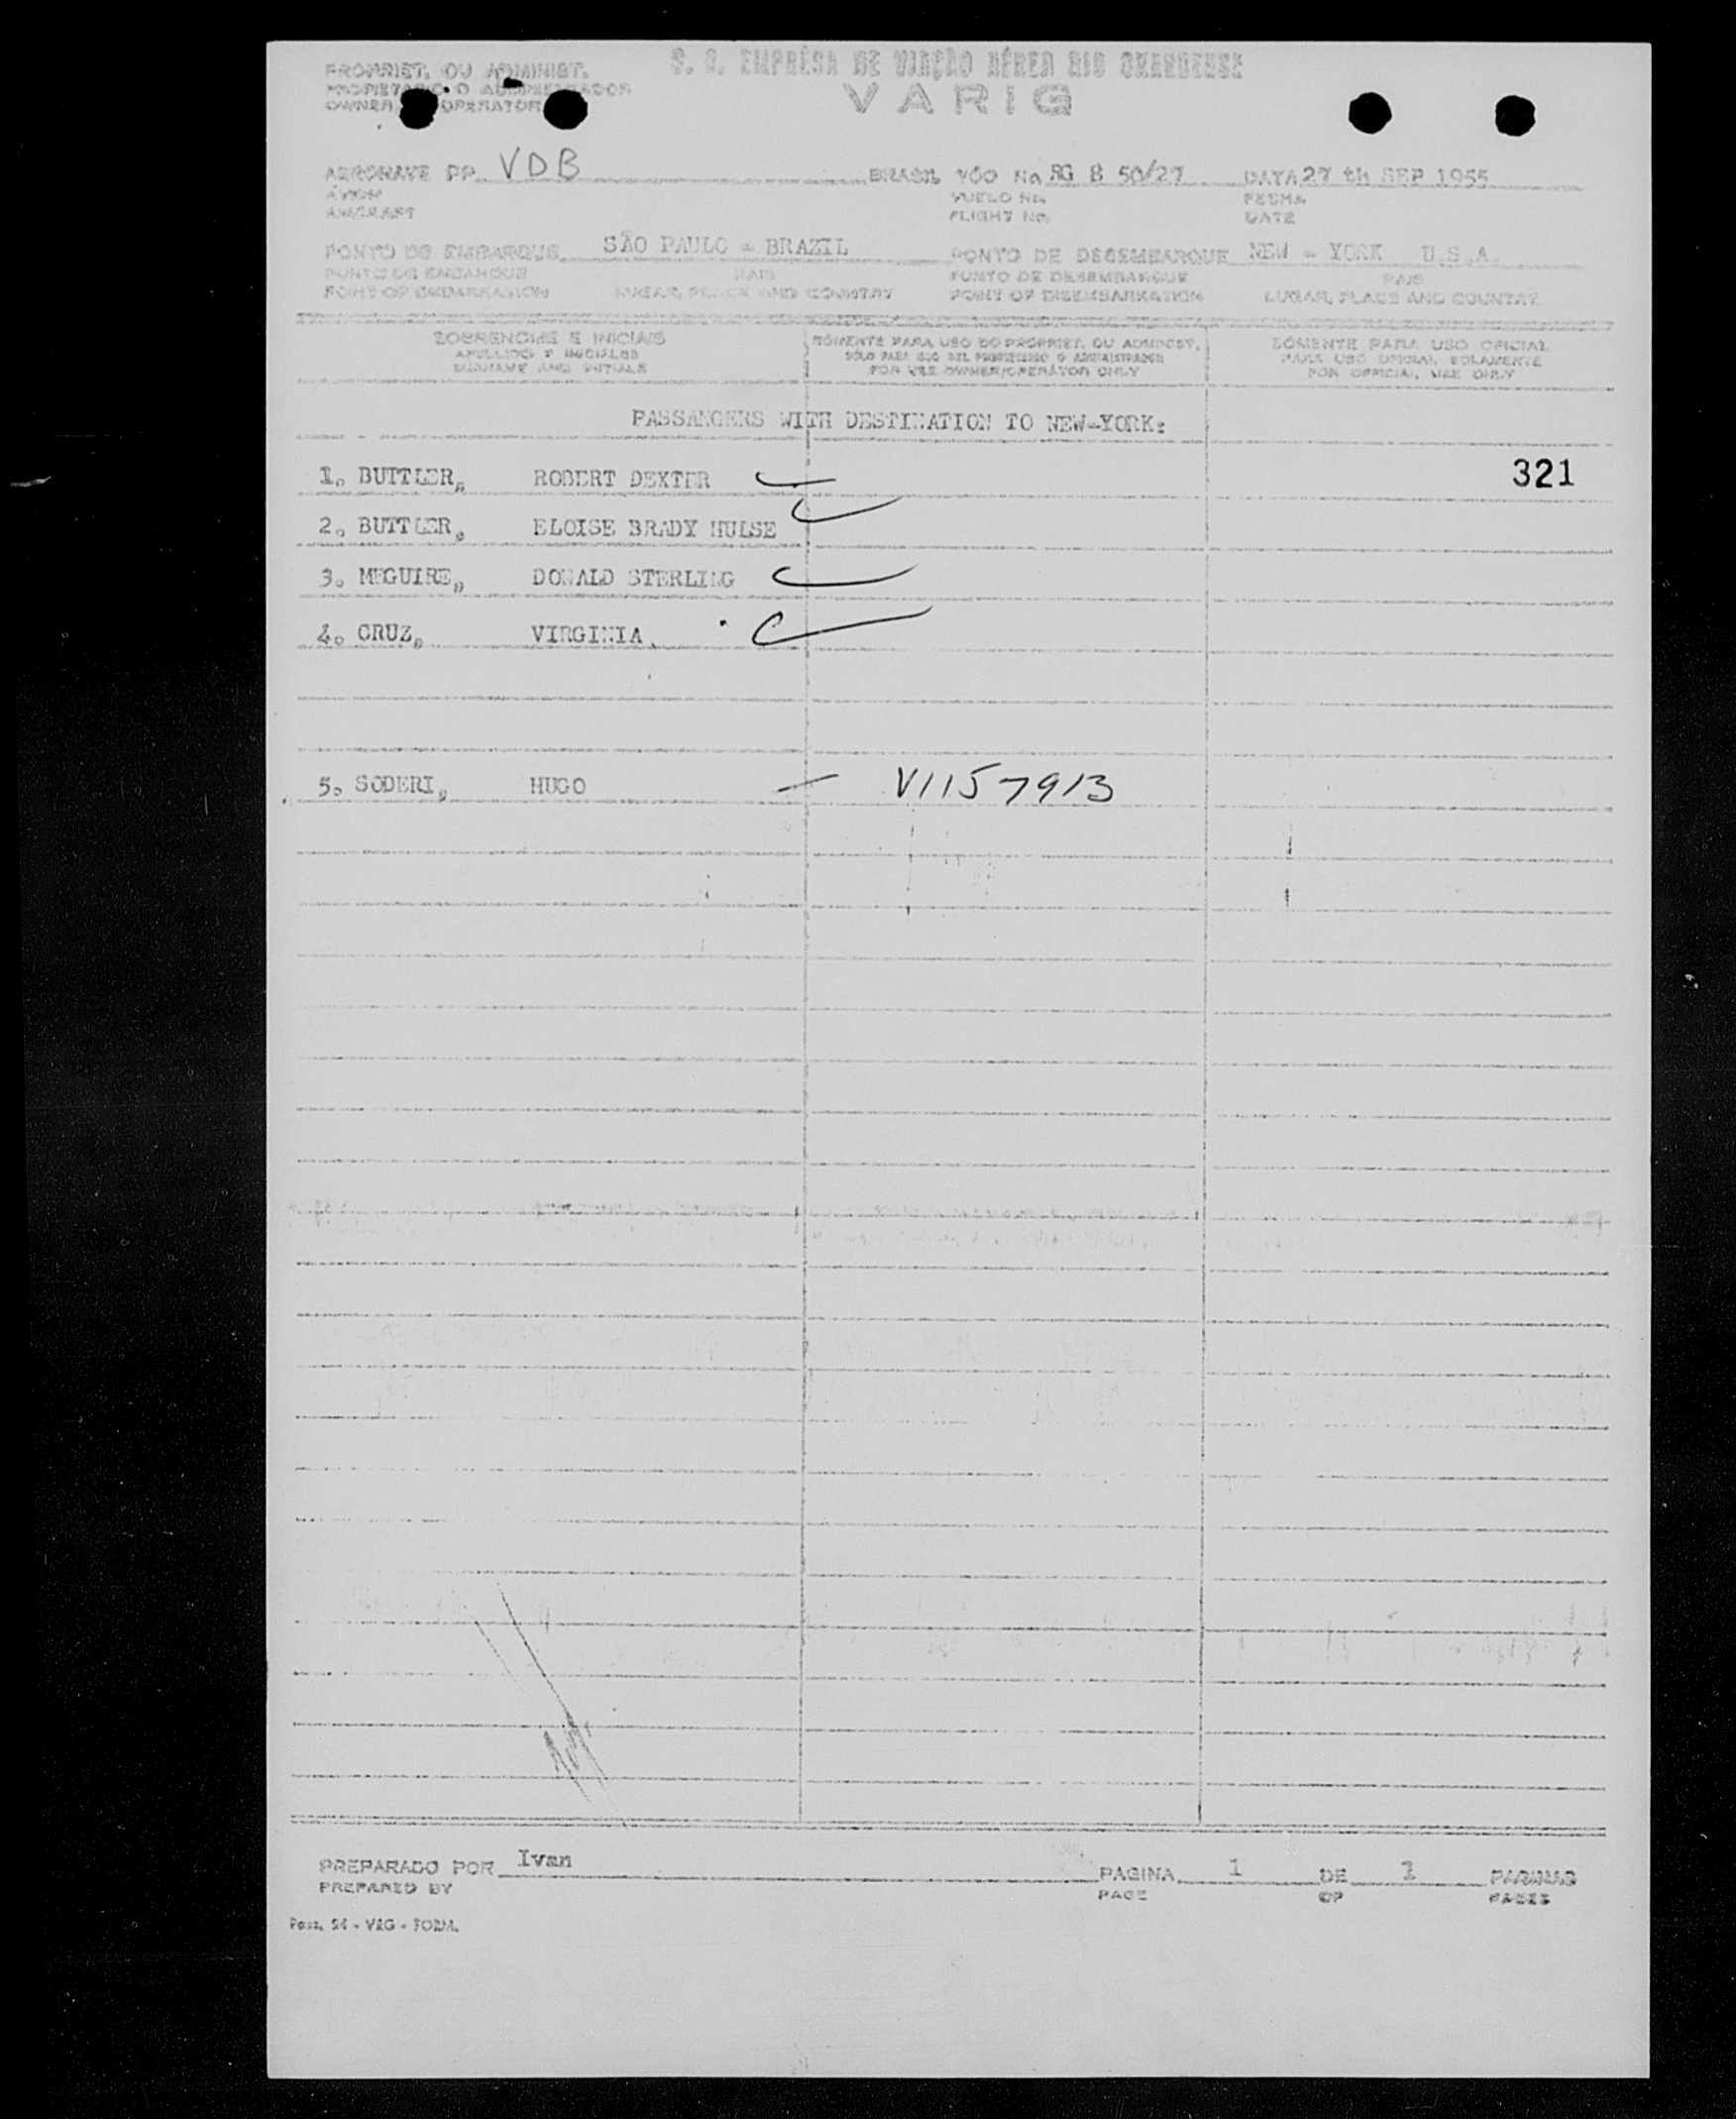 PROPRIET. OU ADMINIST.
S. A. EMPRÊSA DE VIAÇÃO AÉREA RIO GRANDENSE
PROPIETARIO O ADMINISTRADOR
OWNER OPERATOR
VARIG
AERONAVE PP VDB BRASIL VÔO No RG B 50/27 DATA 27 th SEP 1955
AVION VUELO No. FECHA
AIRCRAFT FLIGHT No. DATE
PONTO DE EMBARQUE SÃO PAULO - BRAZIL PONTO DE DESEMBARQUE NEW - YORK U.S.A.
PUNTO DE EMBARQUE PAIS PUNTO DE DESEMBARQUE PAIS
POINT OF EMBARKATION LUGAR, PLACE AND COUNTRY POINT OF DISEMBARKATION LUGAR, PLACE AND COUNTRY
SOBRENOME E INICIAIS SÓMENTE PARA USO DO PROPRIET. OU ADMINIST. SÓMENTE PARA USO OFICIAL
APELLIDO E INICIALES SÓLO PARA USO DEL PROPIETARIO O ADMINISTRADOR PARA USO OFICIAL SOLAMENTE
SURNAME AND INITIALS FOR USE OWNER/OPERATOR ONLY FOR OFFICIAL USE ONLY
PASSANGERS WITH DESTINATION TO NEW-YORK:
1. BUTTLER, ROBERT DEXTER 321
2. BUTTLER, ELOISE BRADY HULSE
3. MEGUIRE, DONALD STERLING
4. CRUZ, VIRGINIA
5. SODERI, HUGO V1157913
PREPARADO POR Ivan PAGINA 1 DE 1 PAGINAS
PREPARED BY PAGE OF PAGES
Pass. 54 - VAG - FORM.